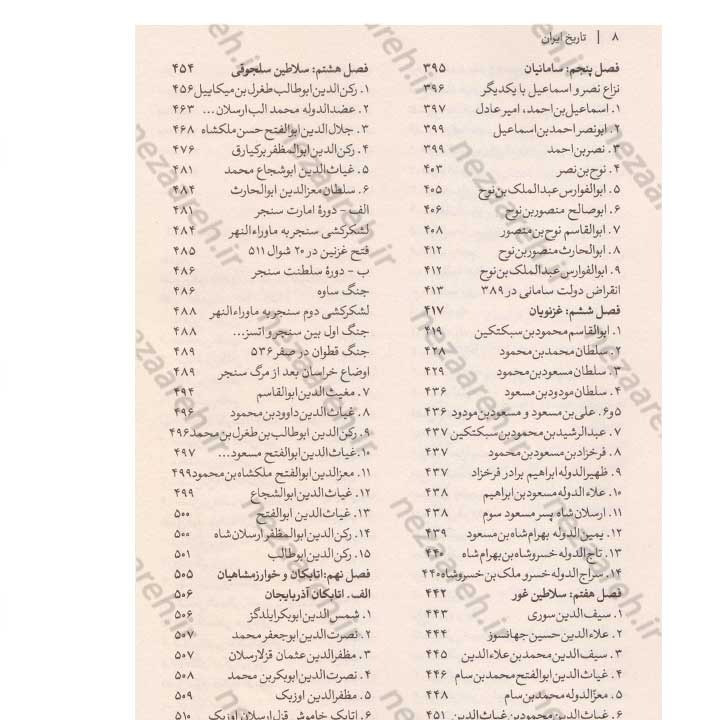 ۸ | تاریخ ایران
فصل پنجم: سامانیان ۳۹۵
نزاع نصر و اسماعیل با یکدیگر ۳۹۶
۱. اسماعیل‌بن‌احمد، امیر عادل ۳۹۷
۲. ابونصر احمدبن‌اسماعیل ۳۹۹
۳. نصربن‌احمد ۳۹۹
۴. نوح‌بن‌نصر ۴۰۳
۵. ابوالفوارس عبدالملک‌بن‌نوح ۴۰۵
۶. ابوصالح منصوربن‌نوح ۴۰۶
۷. ابوالقاسم نوح‌بن‌منصور ۴۰۸
۸. ابوالحارث منصوربن‌نوح ۴۱۲
۹. ابوالفوارس عبدالملک‌بن‌نوح ۴۱۲
انقراض دولت سامانی در ۳۸۹ ۴۱۳
فصل ششم: غزنویان ۴۱۷
۱. ابوالقاسم محمودبن‌سبکتکین ۴۱۹
۲. سلطان محمدبن‌محمود ۴۲۸
۳. سلطان مسعودبن‌محمود ۴۲۹
۴. سلطان مودودبن‌مسعود ۴۳۶
۵و۶. علی‌بن‌مسعود و مسعودبن‌مودود ۴۳۶
۷. عبدالرشیدبن‌محمودبن‌سبکتکین ۴۳۷
۸. فرخزادبن‌مسعودبن‌محمود ۴۳۷
۹. ظهیرالدوله ابراهیم برادر فرخزاد ۴۳۷
۱۰. علاءالدوله مسعودبن‌ابراهیم ۴۳۸
۱۱. ارسلان‌شاه پسر مسعود سوم ۴۳۸
۱۲. یمین‌الدوله بهرام‌شاه‌بن‌مسعود ۴۳۹
۱۳. تاج‌الدوله خسروشاه‌بن‌بهرام‌شاه ۴۴۰
۱۴. سراج‌الدوله خسرو ملک‌بن‌خسروشاه ۴۴۰
فصل هفتم: سلاطین غور ۴۴۲
۱. سیف‌الدین سوری ۴۴۳
۲. علاءالدین حسین جهانسوز ۴۴۴
۳. سیف‌الدین محمدبن‌علاءالدین ۴۴۵
۴. غیاث‌الدین ابوالفتح محمدبن‌سام ۴۴۶
۵. معزّالدوله محمدبن‌سام ۴۴۸
۶. غیاث‌الدین محمودبن‌غیاث‌الدین ۴۵۱
فصل هشتم: سلاطین سلجوقی ۴۵۴
۱. رکن‌الدین ابوطالب طغرل‌بن‌میکاییل ۴۵۶
۲. عضدالدوله محمد الب‌ارسلان... ۴۶۳
۳. جلال‌الدین ابوالفتح حسن ملکشاه ۴۶۸
۴. رکن‌الدین ابوالمظفر برکیارق ۴۷۶
۵. غیاث‌الدین ابوشجاع محمد ۴۸۱
۶. سلطان معزالدین ابوالحارث ۴۸۴
الف - دورهٔ امارت سنجر ۴۸۱
لشکرکشی سنجر به ماوراءالنهر ۴۸۴
فتح غزنین در ۲۰ شوال ۵۱۱ ۴۸۵
ب - دورهٔ سلطنت سنجر ۴۸۶
جنگ ساوه ۴۸۶
لشکرکشی دوم سنجر به ماوراءالنهر ۴۸۸
جنگ اول بین سنجر و اتسز... ۴۸۸
جنگ قطوان در صفر ۵۳۶ ۴۸۹
اوضاع خراسان بعد از مرگ سنجر ۴۸۹
۷. مغیث‌الدین ابوالقاسم ۴۹۴
۸. غیاث‌الدین داوودبن‌محمود ۴۹۶
۹. رکن‌الدین ابوطالب‌بن‌طغرل‌بن‌محمد ۴۹۶
۱۰. غیاث‌الدین ابوالفتح مسعود... ۴۹۷
۱۱. معزالدین ابوالفتح ملکشاه‌بن‌محمود ۴۹۹
۱۲. غیاث‌الدین ابوالشجاع ۴۹۹
۱۳. غیاث‌الدین ابوالفتح ۵۰۰
۱۴. رکن‌الدین ابوالمظفر ارسلان‌شاه ۵۰۰
۱۵. رکن‌الدین ابوطالب ۵۰۱
فصل نهم: اتابکان و خوارزمشاهیان ۵۰۵
الف. اتابکان آذربایجان ۵۰۶
۱. شمس‌الدین ابوبکر ایلدگز ۵۰۶
۲. نصرت‌الدین ابوجعفر محمد ۵۰۷
۳. مظفرالدین عثمان قزلارسلان ۵۰۷
۴. نصرت‌الدین ابوبکربن‌محمد ۵۰۸
۵. مظفرالدین اوزبک ۵۰۹
۶. اتابک خاموش قزل‌ارسلان اوزبک ۵۱۰
nezaareh.ir